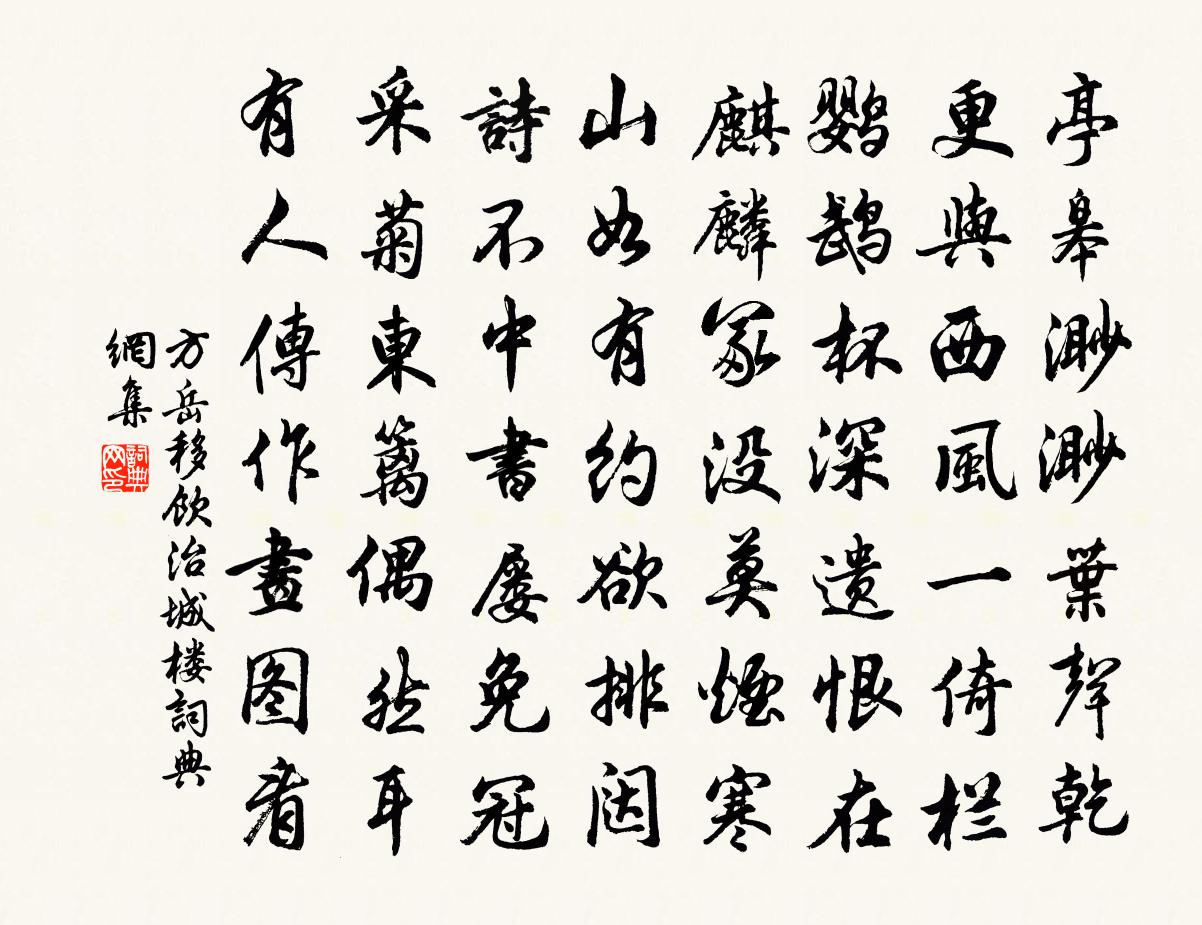 亭皋渺渺葉聲乾
更與西風一倚栏
鹦鵡杯深遗恨在
麒麟冢没莫煙寒
山如有约欲排闼
詩不中書屡免冠
采菊東籬偶然耳
有人傳作畫图看
方岳移飲治城楼詞典
網集
詞典
网印